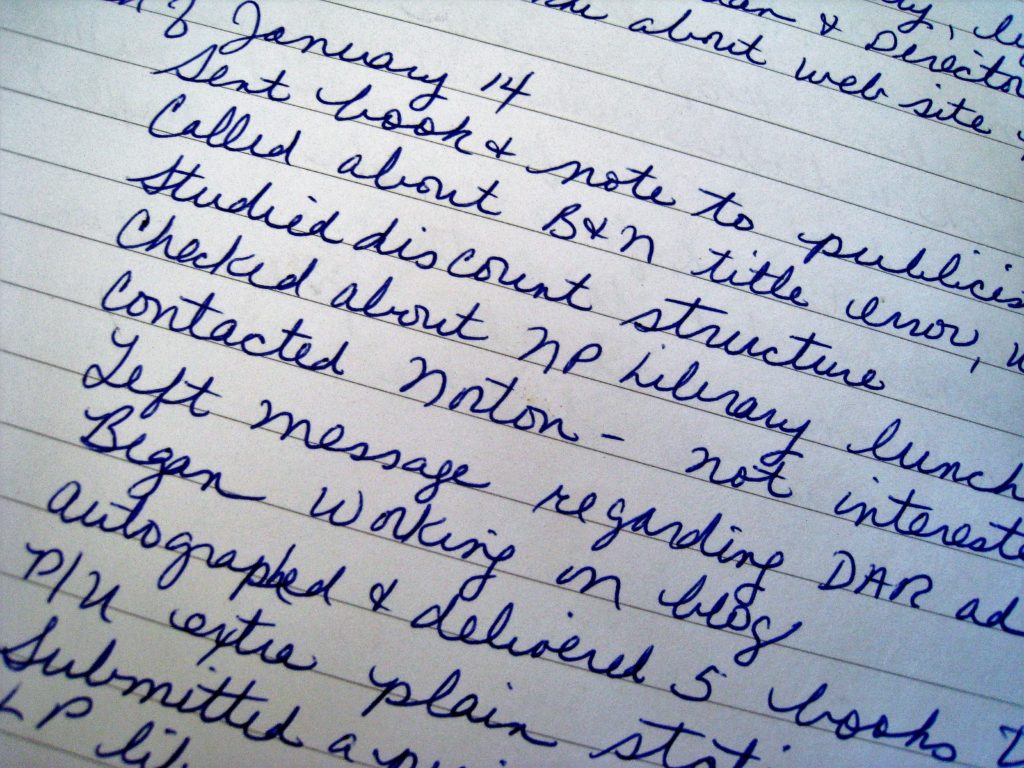 & Director
about web site
January 14
Sent book & note to
Called about B&N title error,
Studied discount structure
Checked about NP Library lunch
Contacted Norton - not
Left message regarding DAR ad
Began working on blog
Autographed & delivered 5 books
P/U extra plain
Submitted a
LP